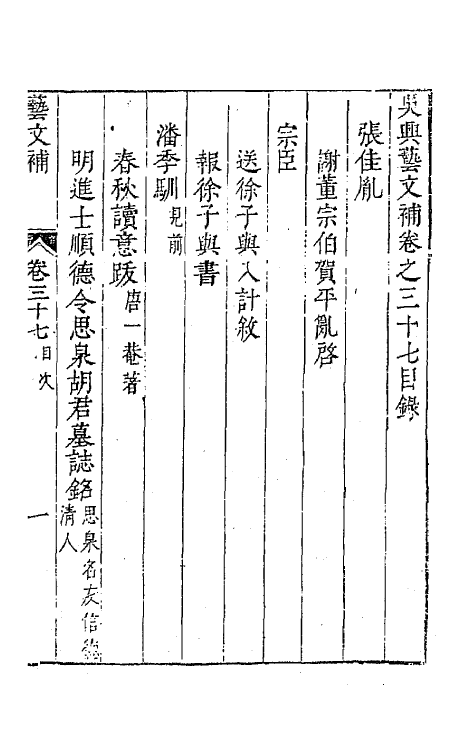 吳興藝文補卷之三十七目錄
張佳胤
謝董宗伯賀平亂啓
宗臣
送徐子與入計敘
報徐子與書
潘季馴見前
春秋讀意跋唐一菴著
明進士順德令思泉胡君墓誌銘思泉名友信德清人
藝文補 卷三十七目次 一